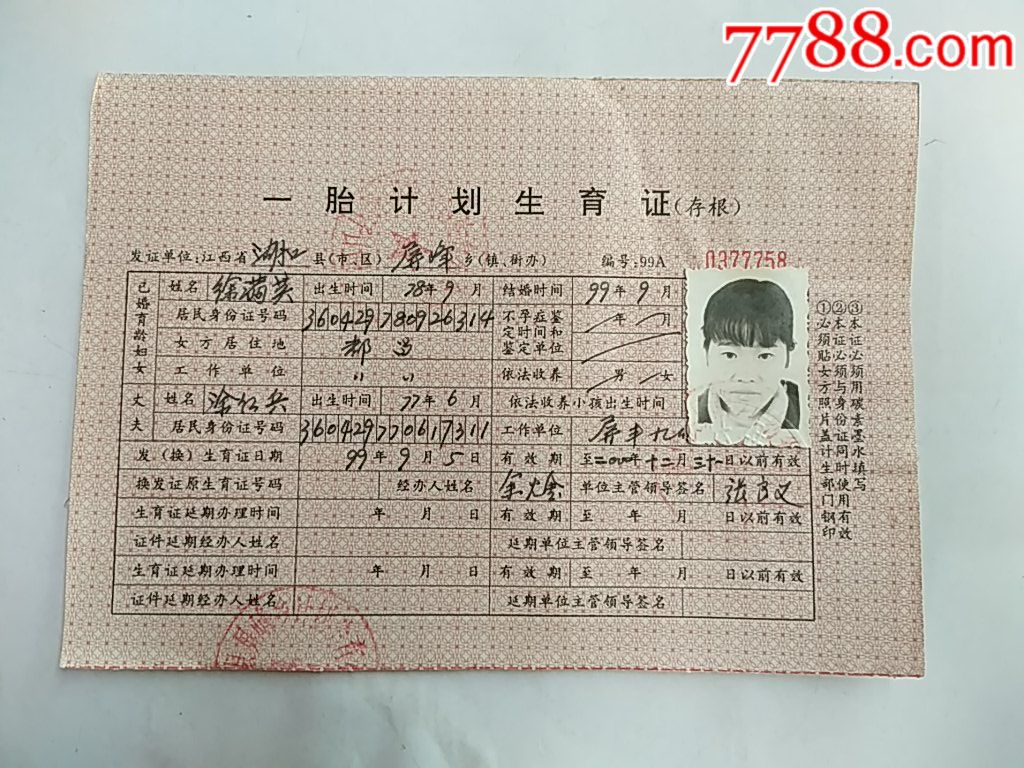 7788.com
一胎计划生育证(存根)
发证单位:江西省湖口县(市、区)屏峰乡(镇、街办) 编号:99A 0377758
已婚育龄妇女 姓名 徐满英 出生时间 78年9月 结婚时间 99年9月
居民身份证号码 360429780926314 不孕症鉴定时间和鉴定单位 年 月
女方居住地 都昌
工作单位 〃 〃 依法收养 男 女
丈夫 姓名 涂红兵 出生时间 77年6月 依法收养小孩出生时间
居民身份证号码 360429770617311 工作单位 屏丰九
发(换)生育证日期 99年9月5日 有效期 至二000年十二月三十一日以前有效
换发证原生育证号码 经办人姓名 单位主管领导签名
生育证延期办理时间 年 月 日 有效期 至 年 月 日以前有效
证件延期经办人姓名 延期单位主管领导签名
生育证延期办理时间 年 月 日 有效期 至 年 月 日以前有效
证件延期经办人姓名 延期单位主管领导签名
①必须贴女方照片盖计生部门钢印
②本证必须与身份证同时使用有效
③本证必须用碳素墨水填写